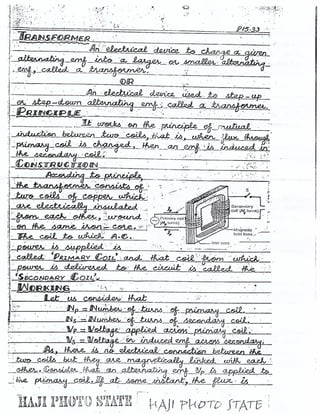 P15-33
TRANSFORMER
An electrical device to change a given
alternating emf into a larger or smaller alternating
emf, called a transformer.
OR
An electrical device used to step-up
or step-down alternating emf, called a transformer.
PRINCIPLE
It works on the principle of mutual
induction between two coils, that is, when flux through
primary coil is changed, then an emf is induced in
the secondary coil.
CONSTRUCTION
According to principle,
the transformer consists of
two coils of copper which
are electrically insulated
from each other, wound
on the same iron-core.
The coil to which A.C.
power is supplied is
called 'PRIMARY COIL' and that coil from which
power is delivered to the circuit is called the
'SECONDARY COIL'.
Primary coil
Secondary coil
Magnetic field lines
Iron core
WORKING
Let us consider that
Np = Number of turns of primary coil.
Ns = Number of turns of secondary coil.
Vp = Voltage applied across primary coil.
Vs = Voltage or induced emf across secondary.
As, there is no electrical connection between the
two coils but they are magnetically linked with each
other. Consider that an alternating emf Vp is applied to
the primary coil. If at some instant, the flux is
HAJI PHOTO STATE HAJI PHOTO STATE